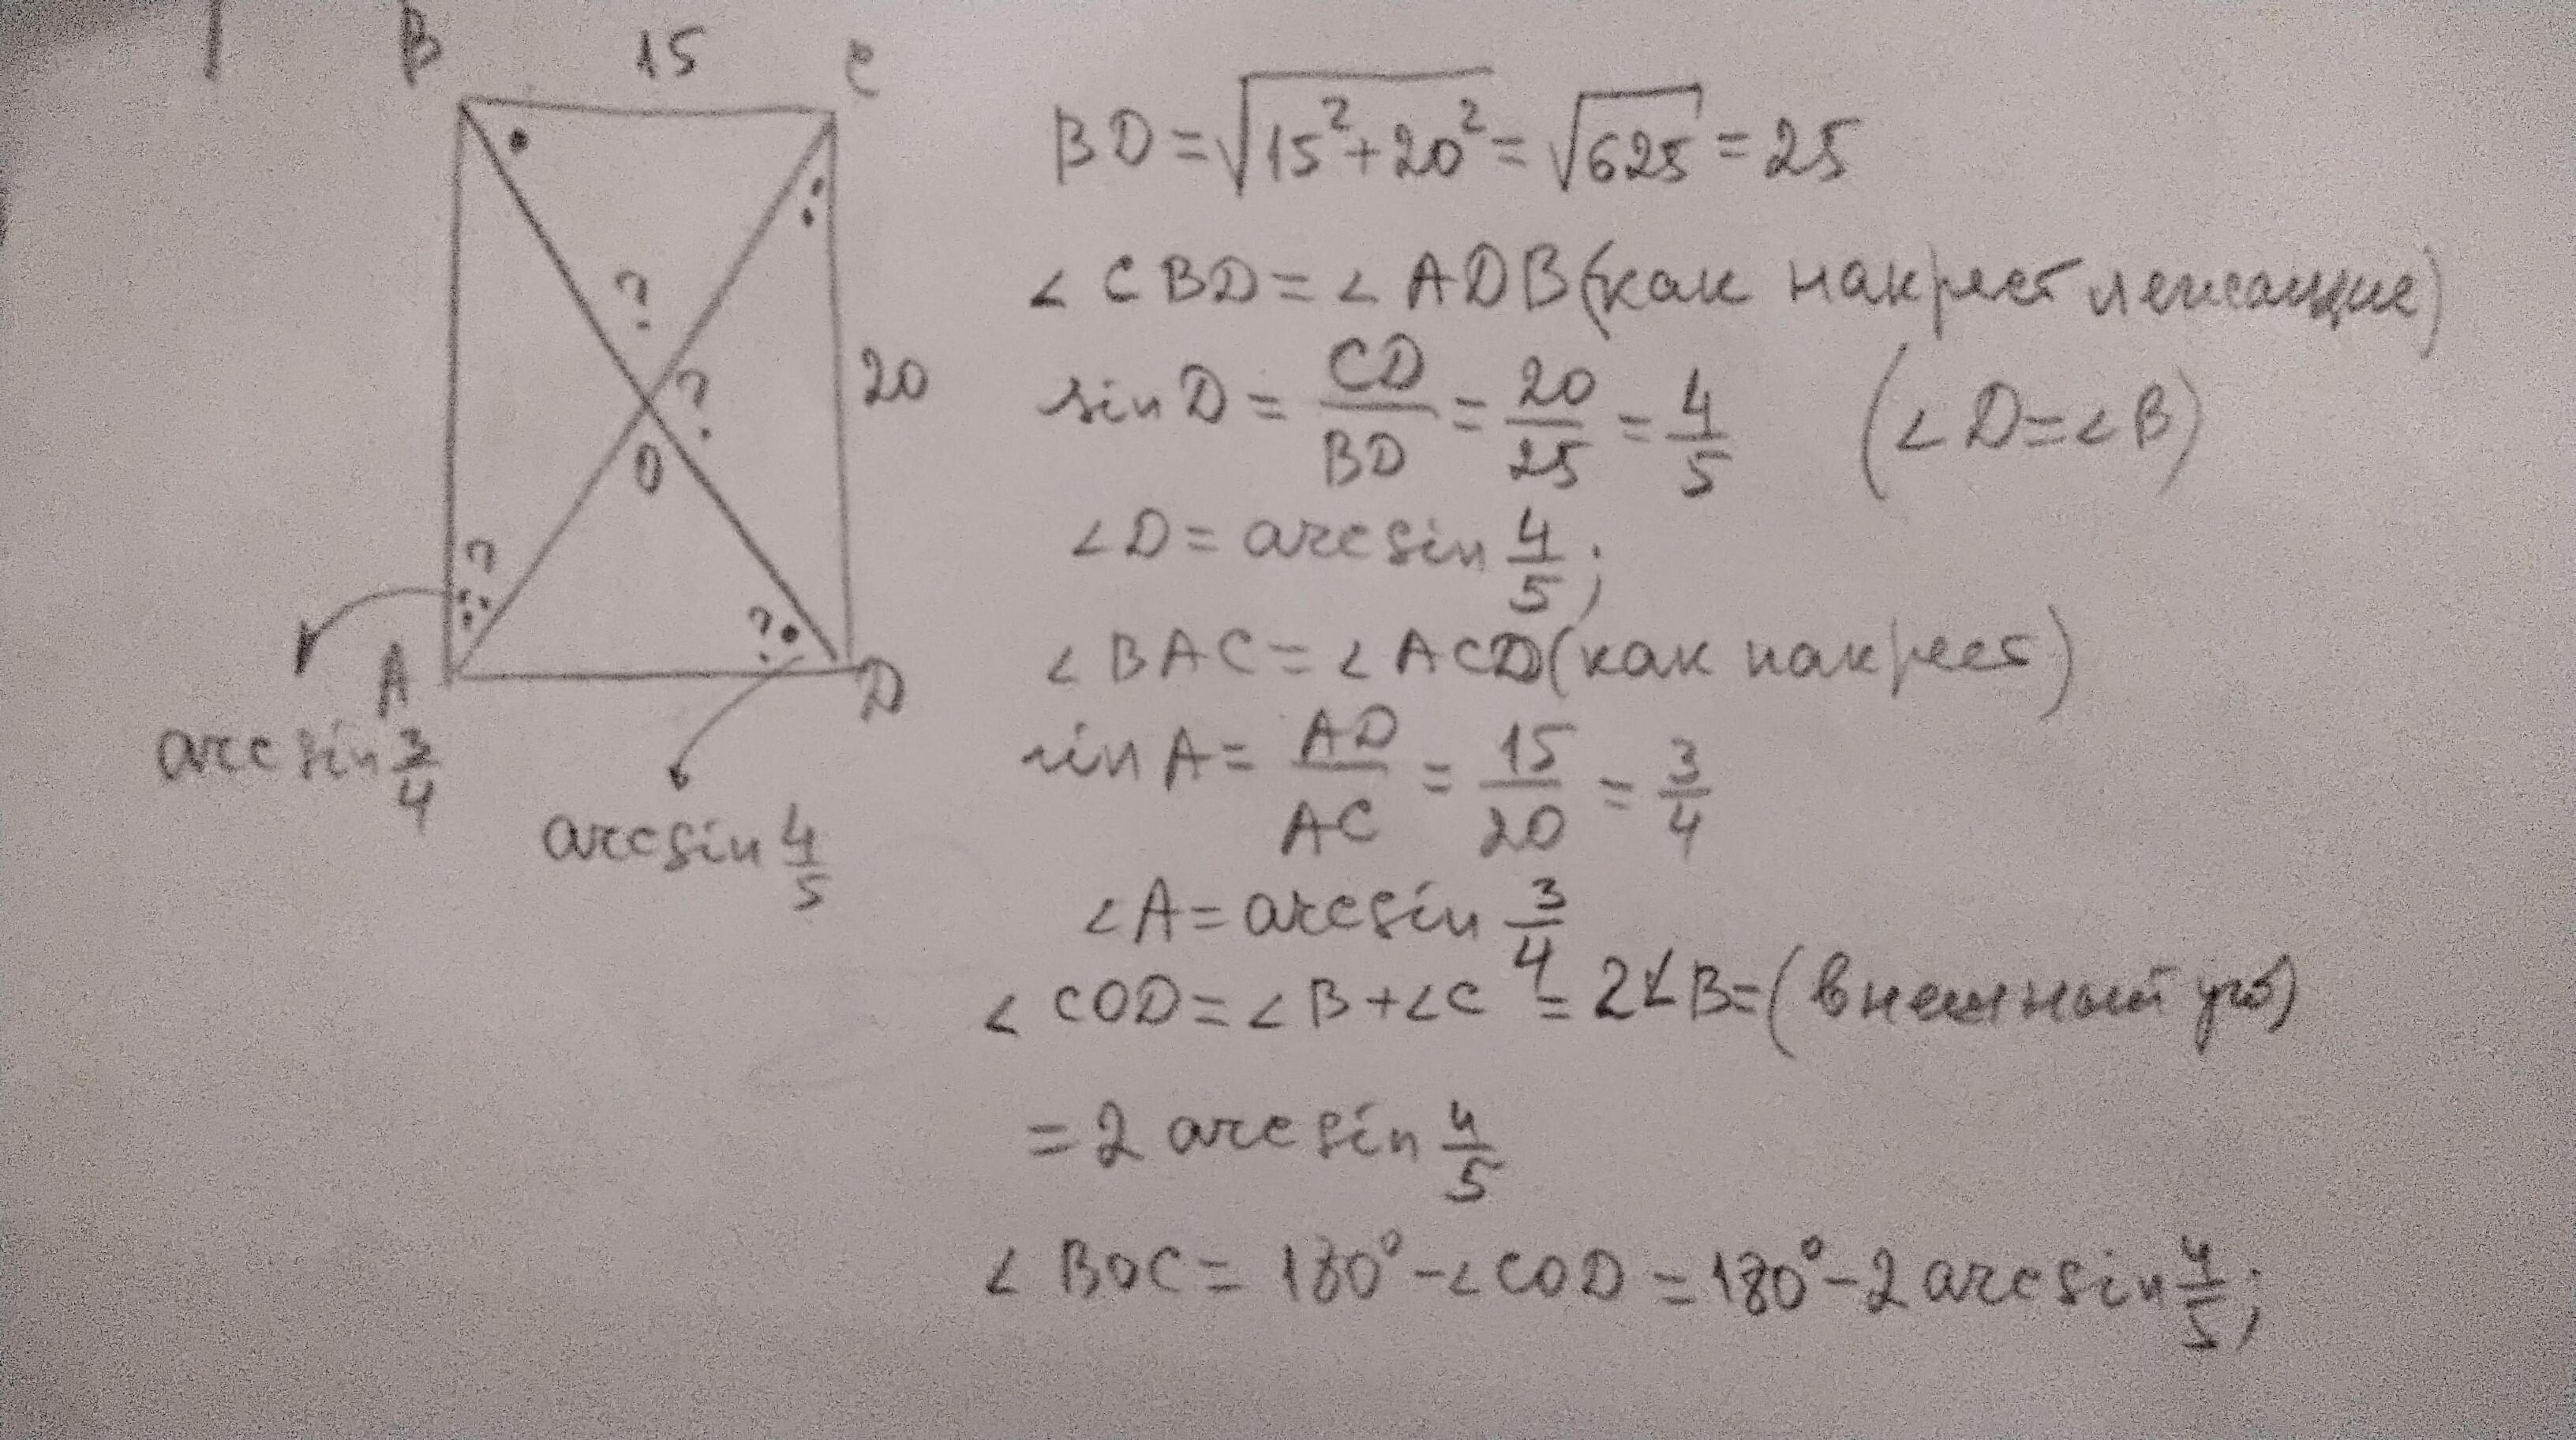 B 15 C
? ?
20
O
? ?
A D
arcsin 3/4
arcsin 4/5
BD = √(15² + 20²) = √625 = 25
∠ CBD = ∠ ADB (как накрест лежащие)
sin D = CD/BD = 20/25 = 4/5 (∠D = ∠B)
∠D = arcsin 4/5;
∠ BAC = ∠ ACD (как накрест)
sin A = AD/AC = 15/20 = 3/4
∠A = arcsin 3/4
∠ COD = ∠B + ∠C = 2∠B = (внешный угол)
= 2 arcsin 4/5
∠ BOC = 180° - ∠COD = 180° - 2 arcsin 4/5;